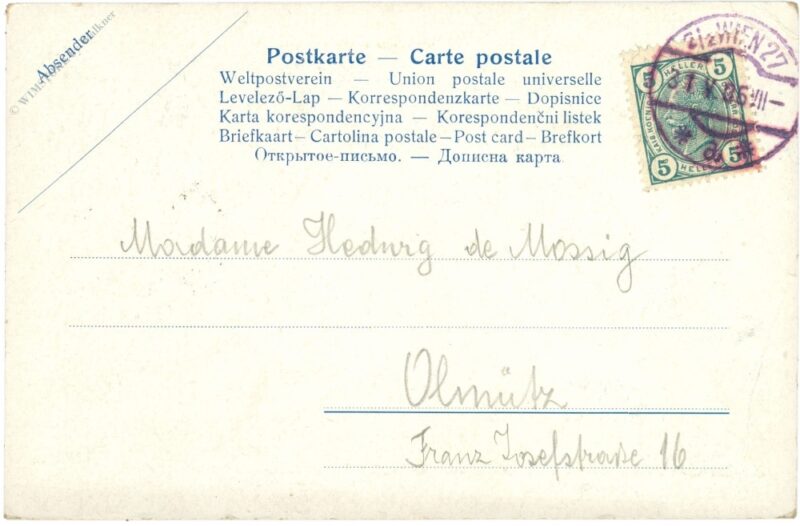 Absender
Postkarte — Carte postale
Weltpostverein — Union postale universelle
Levelező-Lap — Korrespondenzkarte — Dopisnice
Karta korespondencyjna — Korespondenčni listek
Briefkaart — Cartolina postale — Post card — Brefkort
Открытое-письмо. — Дописна карта
5 HELLER 5
5 HELLER 5
2/2 WIEN 27
31 V 05 VII -
* a *
Madame Hedwig de Mossig
Olmütz
Franz Josefstraße 16